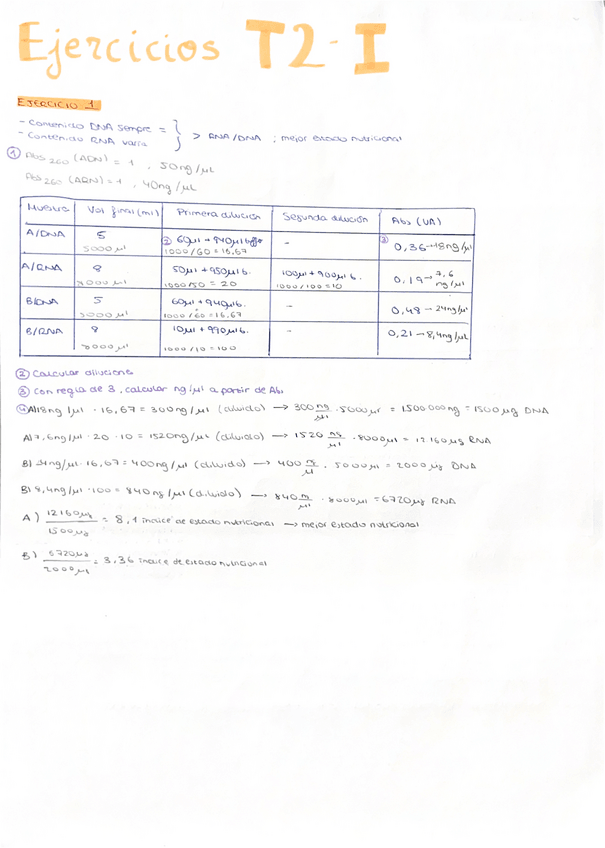 Ejercicios T2-I
EJERCICIO 1
- Contenido DNA siempre =
- Contenido RNA varía
> RNA/DNA ; mejor estado nutricional
① Abs 260 (ADN) = 1 , 50ng/µL
Abs 260 (ARN) = 1 , 40ng/µL
Vol final (ml) Primera dilución Segunda dilución Abs (UA)
A/DNA 5 ② 60µl + 940µl - ③ 0,36→18ng/µl
5000µl 1000/60 = 16,67
A/RNA 8 50µl + 950µl b. 100µl + 900µl b. 0,19→7,6 ng/µl
8000µl 1000/50 = 20 1000/100 = 10
B/DNA 5 60µl + 940µl b. - 0,48→24ng/µl
5000µl 1000/60 = 16,67
B/RNA 8 10µl + 990µl b. - 0,21→8,4ng/µL
8000µl 1000/10 = 100
② Calcular diluciones
③ Con regla de 3, calcular ng/µl a partir de Abs
④ A) 18ng/µl · 16,67 = 300ng/µl (diluido) → 300 ng/µl · 5000µl = 1500 000ng = 1500µg DNA
A) 7,6ng/µl · 20 · 10 = 1520ng/µl (diluido) → 1520 ng/µl · 8000µl = 12160µg RNA
B) 24ng/µl · 16,67 = 400ng/µl (diluido) → 400 ng/µl · 5000µl = 2000µg DNA
B) 8,4ng/µl · 100 = 840ng/µl (diluido) → 840 ng/µl · 8000µl = 6720µg RNA
A) 12160µg / 1500µg = 8,1 índice de estado nutricional → mejor estado nutricional
B) 6720µg / 2000µg = 3,36 índice de estado nutricional